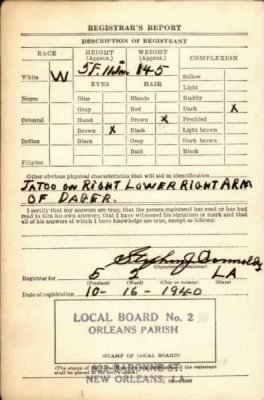 REGISTRAR'S REPORT
DESCRIPTION OF REGISTRANT
RACE HEIGHT (Approx.) WEIGHT (Approx.) COMPLEXION
White W 5F. 145 Sallow
EYES HAIR Light
Negro Blue Blonde Ruddy
Gray Red Dark X
Oriental Hazel Brown X Freckled
Brown X Black Light brown
Indian Black Gray Dark brown
Bald Black
Filipino
Other obvious physical characteristics that will aid in identification
TATOO ON RIGHT LOWER RIGHT ARM
OF DAGER.
I certify that my answers are true; that the person registered has read or has had
read to him his own answers; that I have witnessed his signature or mark and that
all of his answers of which I have knowledge are true, except as follows:
Registrar for 5 2 LA
(Precinct) (Ward) (City or county) (State)
Date of registration 10-16-1940
LOCAL BOARD No. 2
ORLEANS PARISH
(STAMP OF LOCAL BOARD)
(The stamp of the
shall be placed in
BARONNE ST.
NEW ORLEANS, LA.